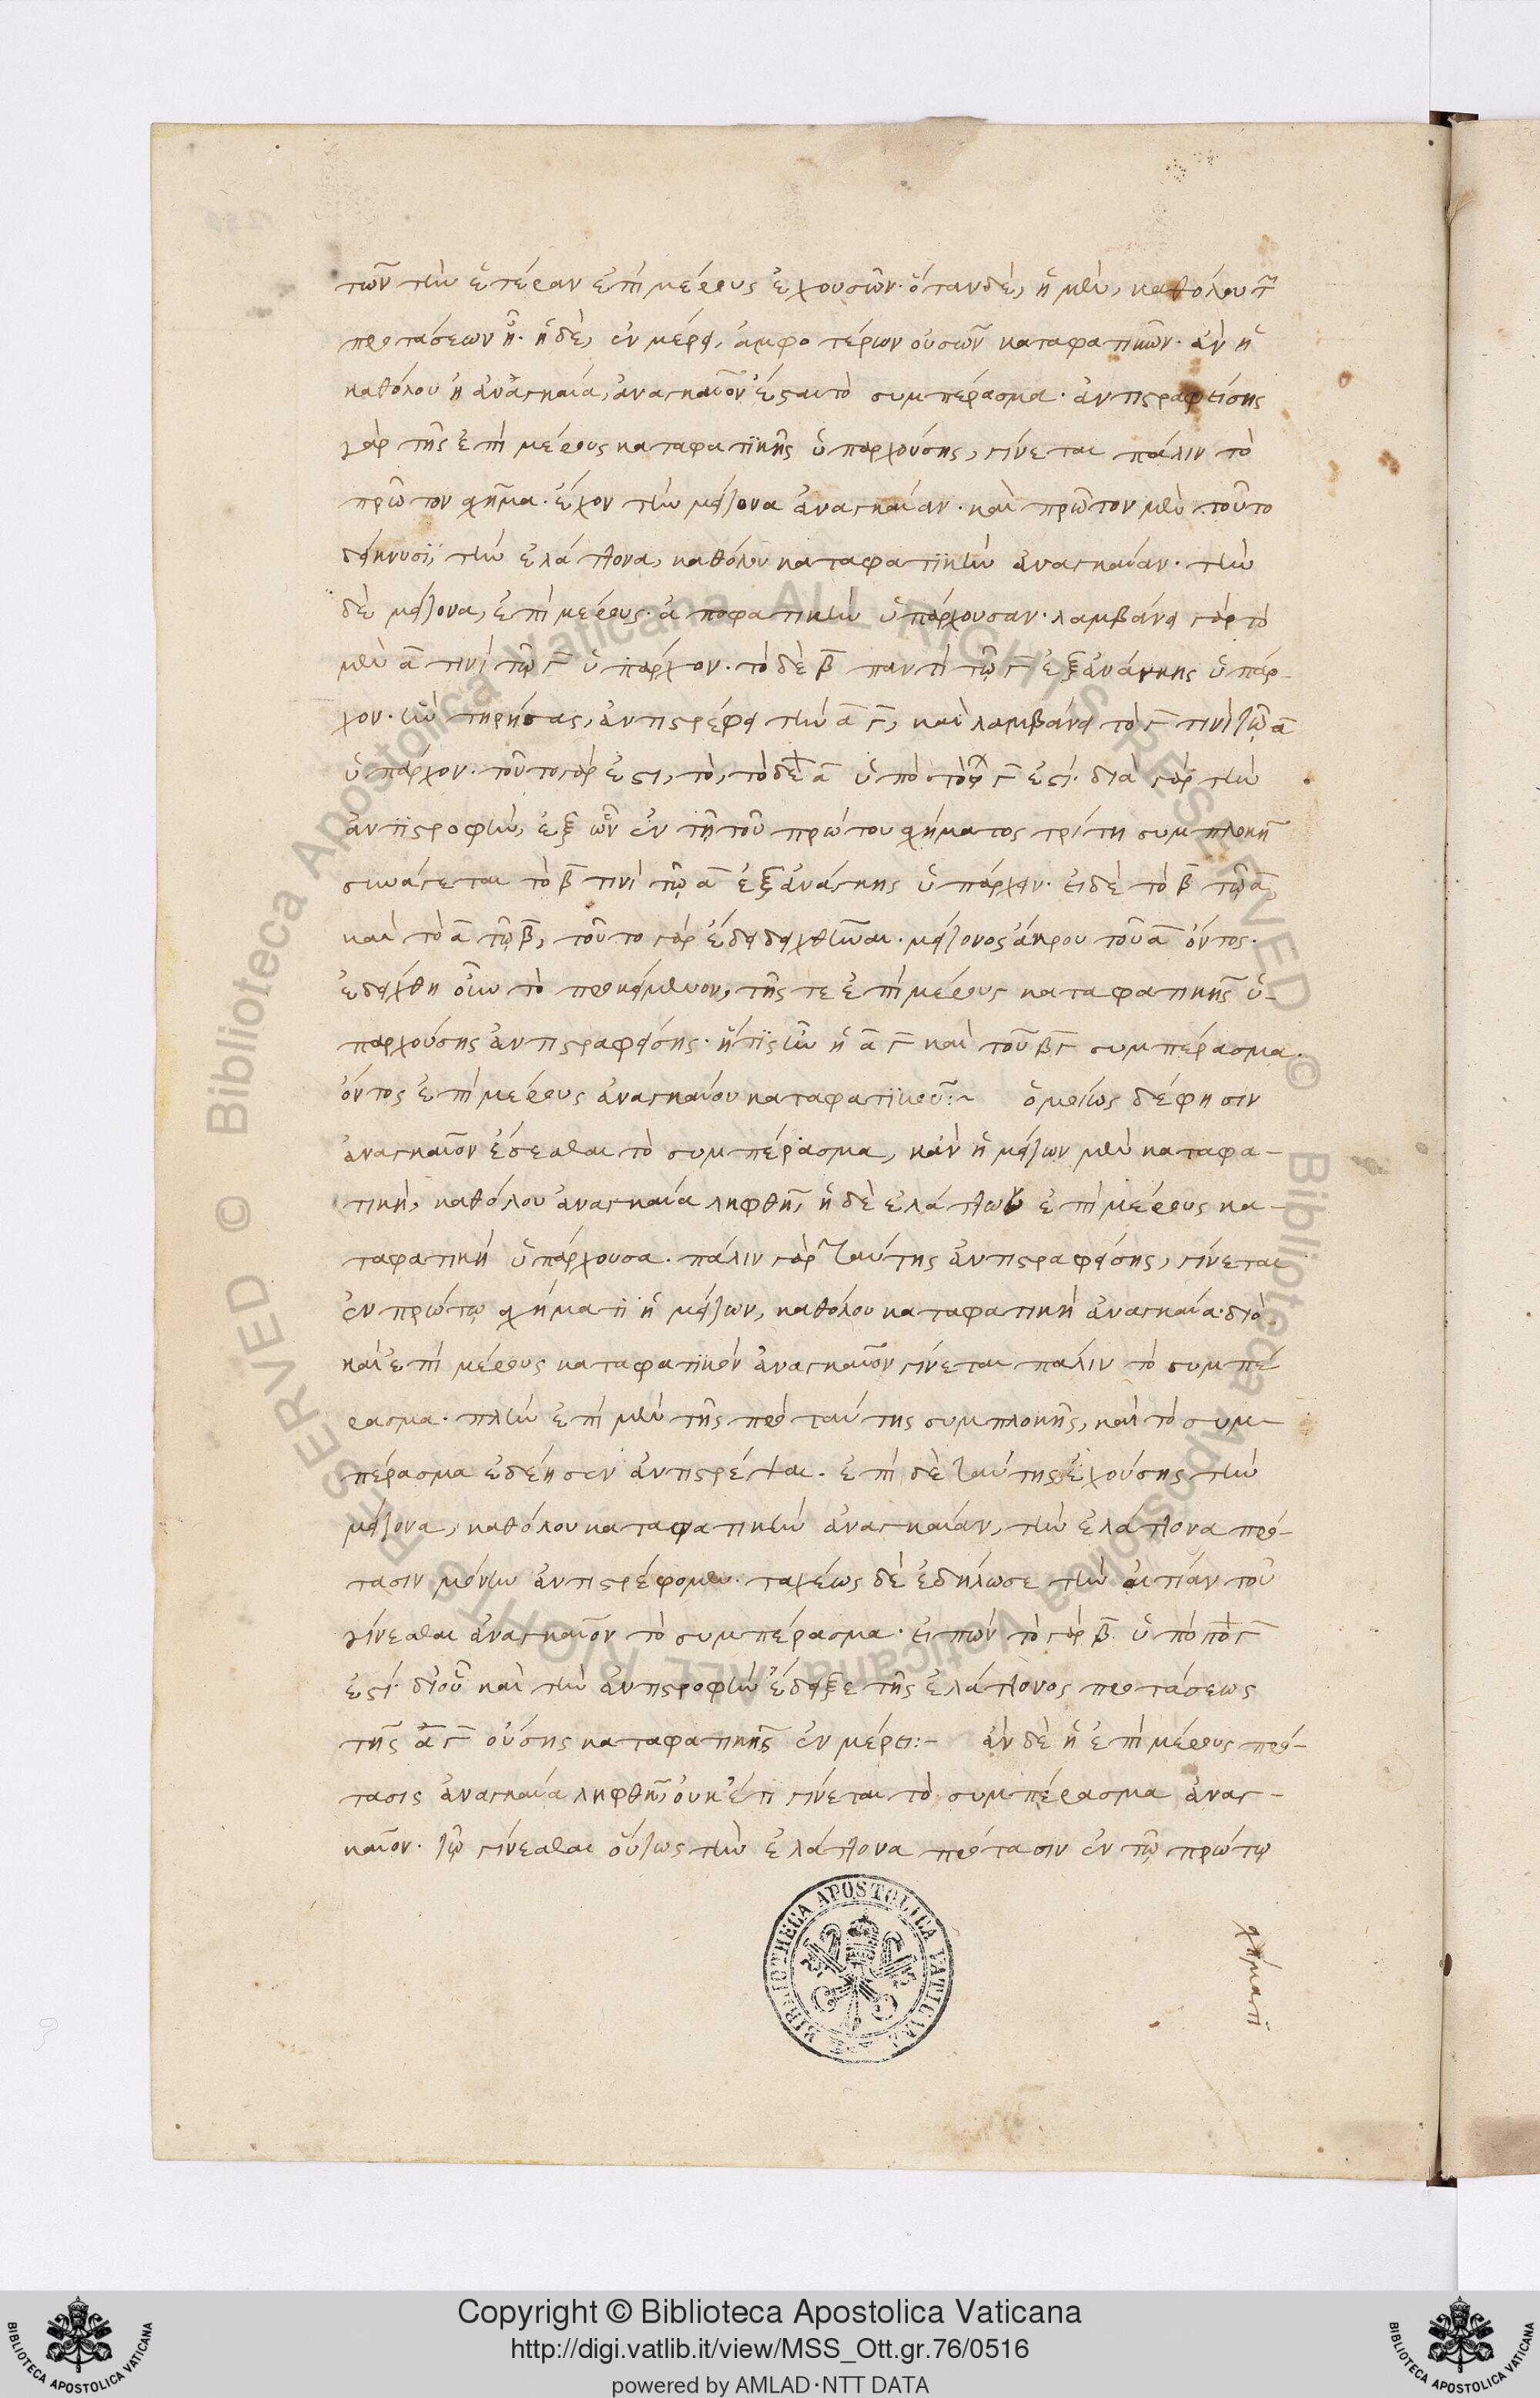 τῶν τὴν ἑτέραν ἐπὶ μέρους ἐχουσῶν· ὅταν δὲ, ἡ μὲν, καθόλου τῶν
προτάσεων ᾖ· ἡ δὲ, ἐν μέρει, ἀμφοτέρων οὐσῶν καταφατικῶν· ἂν ἡ
καθόλου ᾖ ἀναγκαία, ἀναγκαῖον ἔσται τὸ συμπέρασμα· ἀντιστραφείσης
γὰρ τῆς ἐπὶ μέρους καταφατικῆς ὑπαρχούσης, γίνεται πάλιν τὸ
πρῶτον σχῆμα· ἔχον τὴν μείζονα ἀναγκαίαν· καὶ πρῶτον μὲν τοῦτο
δείκνυσι, τὴν ἐλάττονα, καθόλου καταφατικὴν ἀναγκαίαν· τὴν
δὲ μείζονα, ἐπὶ μέρους· ἀποφατικὴν ὑπάρχουσαν· λαμβάνει γὰρ τὸ
μὲν α τινὶ τῷ γ ὑπάρχον· τὸ δὲ β παντὶ τῷ γ ἐξ ἀνάγκης ὑπάρ-
χον· ἣν τηρήσας, ἀντιστρέφει τὴν α γ, καὶ λαμβάνει τὸ γ τινὶ τῷ α
ὑπάρχον· τοῦτο γάρ ἐστι, τὸ, τὸ δὲ α ὑπὸ τὸ γ ἐστί· διὰ γὰρ τὴν
ἀντιστροφὴν, ἐξ ὧν ἐν τῇ τοῦ πρώτου σχήματος τρίτῃ συμπλοκῇ
συνάγεται τὸ β τινὶ τῷ α ἐξ ἀνάγκης ὑπάρχειν· εἰ δὲ τὸ β τῷ α,
καὶ τὸ α τῷ β, τοῦτο γὰρ ἔδει δειχθῆναι· μείζονος ἄκρου τοῦ α ὄντος·
ἐδείχθη οὖν τὸ προκείμενον, τῆς τε ἐπὶ μέρους καταφατικῆς ὑ-
παρχούσης ἀντιστραφείσης· ἥτις ἦν ἡ α γ καὶ τοῦ β γ συμπέρασμα·
ὄντος ἐπὶ μέρους ἀναγκαίου καταφατικοῦ:~ ὁμοίως δέ φησιν
ἀναγκαῖον ἔσεσθαι τὸ συμπέρασμα, κἂν ἡ μείζων μὲν καταφα-
τικὴ, καθόλου ἀναγκαία ληφθῇ, ἡ δὲ ἐλάττων ἐπὶ μέρους κα-
ταφατικὴ ὑπάρχουσα· πάλιν γὰρ ταύτης ἀντιστραφείσης, γίνεται
ἐν πρώτῳ σχήματι ἡ μείζων, καθόλου καταφατικὴ ἀναγκαία· διὸ
καὶ ἐπὶ μέρους καταφατικὸν ἀναγκαῖον γίνεται πάλιν τὸ συμπέ
ρασμα· πλὴν ἐπὶ μὲν τῆς πρὸ ταύτης συμπλοκῆς, καὶ τὸ συμ-
πέρασμα ἐδέησεν ἀντιστρέψαι· ἐπὶ δὲ ταύτης ἐχούσης τὴν
μείζονα, καθόλου καταφατικὴν ἀναγκαίαν, τὴν ἐλάττονα πρό-
τασιν μόνην ἀντιστρέφομεν· ταχέως δὲ ἐδήλωσε τὴν αἰτίαν τοῦ
γίνεσθαι ἀναγκαῖον τὸ συμπέρασμα· εἰπὼν τὸ γὰρ β ὑπὸ τὸ γ
ἐστί· δι' οὗ καὶ τὴν ἀντιστροφὴν ἔδειξε τῆς ἐλάττονος προτάσεως
τῆς α γ οὔσης καταφατικῆς ἐν μέρει:- ἂν δὲ ἡ ἐπὶ μέρους πρό-
τασις ἀναγκαία ληφθῇ, οὐκέτι γίνεται τὸ συμπέρασμα ἀναγ-
καῖον· τῷ γίνεσθαι οὕτως τὴν ἐλάττονα πρότασιν ἐν τῷ πρώτῳ
σχήματι
BIBLIOTHECA APOSTOLICA VATICANA
© Biblioteca Apostolica Vaticana ALL RIGHTS RESERVED © Biblioteca Apostolica Vaticana ALL RIGHTS RESERVED
Copyright © Biblioteca Apostolica Vaticana
http://digi.vatlib.it/view/MSS_Ott.gr.76/0516
powered by AMLAD·NTT DATA
BIBLIOTECA APOSTOLICA VATICANA
BIBLIOTECA APOSTOLICA VATICANA